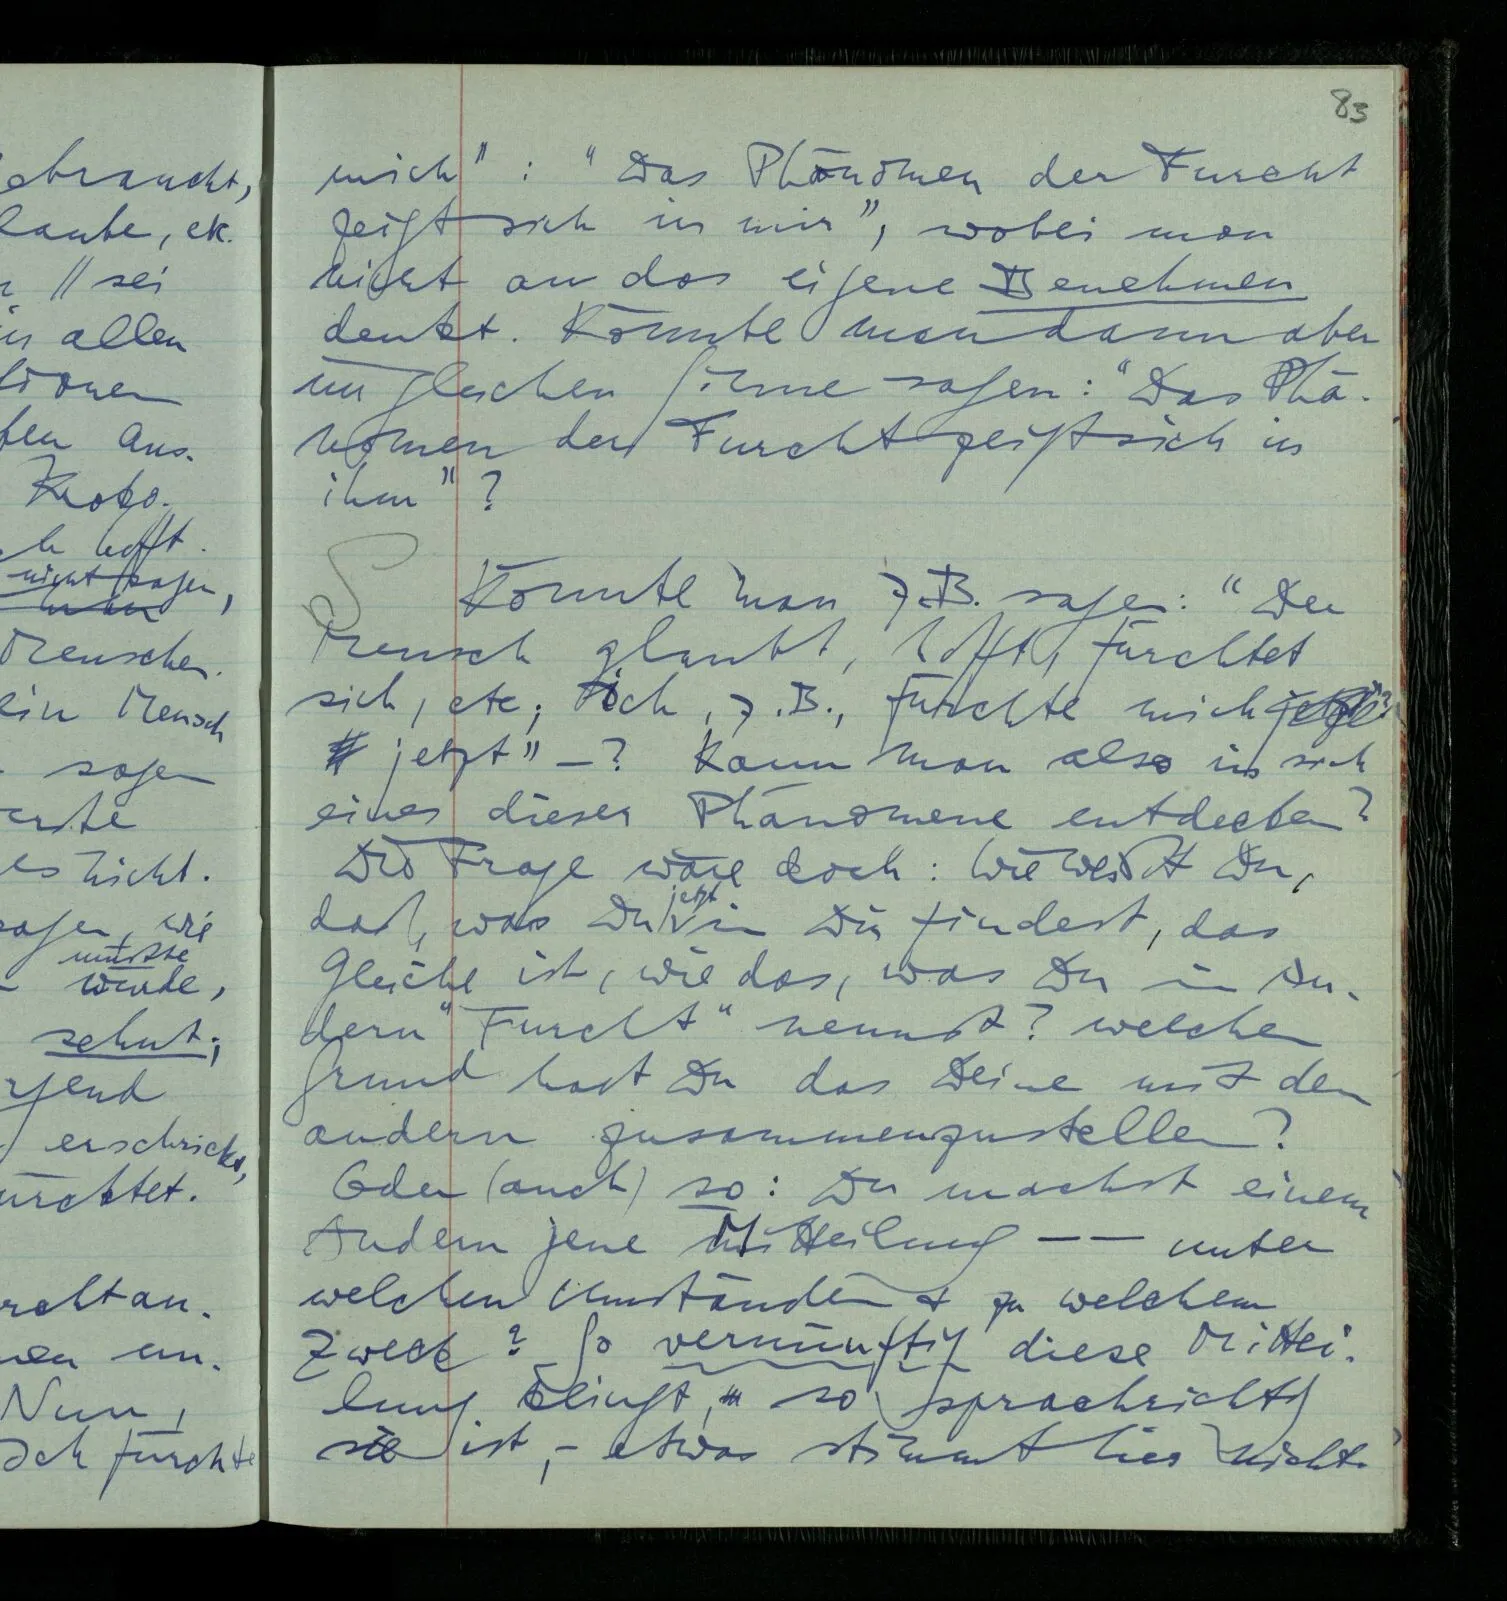 ebraucht,
laube, etc.
// sei
in allen
tionen
ben aus.
hofft.
nicht sagen,
man
Menschen.
ein Mensch
sagen
erste
es nicht.
sagen, wie
müsste
würde,
sehnt;
rgend
erschrickt,
ürchtet.
racht an.
un-
Nun,
Ich fürchte
83
mich" : "Das Phänomen der Furcht
zeigt sich in mir", wobei man
nicht an das eigene Benehmen
denkt. Könnte man dann aber
im gleichen Sinne sagen: "Das Phä-
nomen der Furcht zeigt sich in
ihm" ?
Könnte man z.B. sagen: "Der
Mensch glaubt, hofft, fürchtet
sich, etc; ich, z.B., fürchte mich
jetzt" – ? Kann man also in sich
eines dieser Phänomene entdecken?
Die Frage wäre doch: Wie weißt Du,
jetzt
daß, was Du in Dir findest, das
Gleiche ist, wie das, was Du im An-
dern "Furcht" nennst? Welchen
Grund hast Du das Deine mit dem
andern zusammenzustellen?
Oder (auch) so: Du machst einem
Andern jene Mitteilung –– unter
welchen Umständen & zu welchem
Zweck? So vernünftig diese Mittei-
lung klingt, so sprachrichtig
sie ist, – etwas stimmt hier nicht.